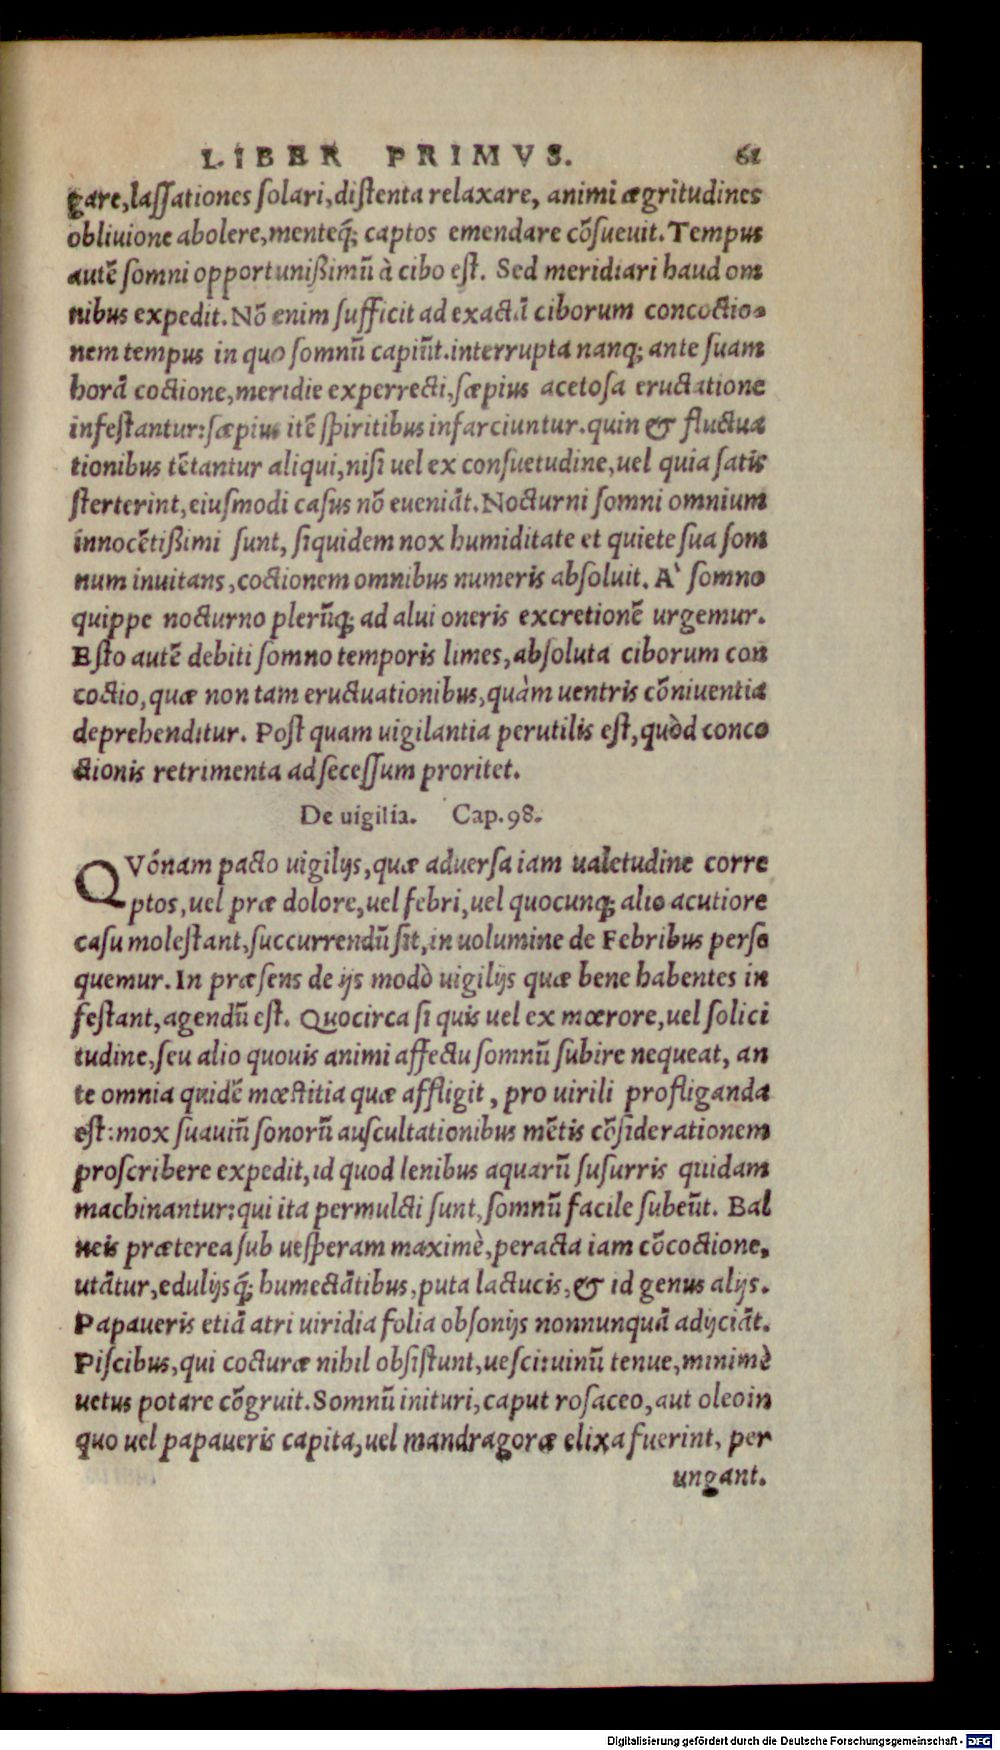 LIBER PRIMVS. 61
gare, laſſationes ſolari, diſtenta relaxare, animi ægritudines
obliuione abolere, menteq́; captos emendare cõſueuit. Tempus
autẽ ſomni opportunißimũ à cibo eſt. Sed meridiari haud om
nibus expedit. Nõ enim ſufficit ad exactã ciborum concoctio-
nem tempus in quo ſomnũ capiũt. interrupta nanq; ante ſuam
horã coctione, meridie experrecti, ſæpius acetoſa eructatione
infeſtantur: ſæpius itẽ ſpiritibus infarciuntur. quin & fluctua
tionibus tẽtantur aliqui, niſi uel ex conſuetudine, uel quia ſatis
ſterterint, eiuſmodi caſus nõ eueniãt. Nocturni ſomni omnium
innocẽtißimi ſunt, ſiquidem nox humiditate et quiete ſua ſom
num inuitans, coctionem omnibus numeris abſoluit. A` ſomno
quippe nocturno plerũq; ad alui oneris excretionẽ urgemur.
Eſto autẽ debiti ſomno temporis limes, abſoluta ciborum con
coctio, quæ non tam eructuationibus, quàm uentris cõniuentia
deprehenditur. Poſt quam uigilantia perutilis eſt, quòd conco
ctionis retrimenta ad ſeceſſum proritet.
De uigilia. Cap. 98.
QVónam pacto uigilijs, quæ aduerſa iam ualetudine corre
ptos, uel præ dolore, uel febri, uel quocunq; alio acutiore
caſu moleſtant, ſuccurrendũ ſit, in uolumine de Febribus perſe
quemur. In præſens de ijs modò uigilijs quæ bene habentes in
feſtant, agendũ eſt. Quocirca ſi quis uel ex mœrore, uel ſolici
tudine, ſeu alio quouis animi affectu ſomnũ ſubire nequeat, an
te omnia quidẽ mœſtitia quæ affligit, pro uirili profliganda
eſt: mox ſuauiũ ſonorũ auſcultationibus mẽtis cõſiderationem
proſcribere expedit, id quod lenibus aquarũ ſuſurris quidam
machinantur: qui ita permulcti ſunt, ſomnũ facile ſubeũt. Bal
neis præterea ſub ueſperam maximè, peracta iam cõcoctione,
utãtur, edulijsq́; humectãtibus, puta lactucis, & id genus alijs.
Papaueris etiã atri uiridia folia obſonijs nonnunquã adijciãt.
Piſcibus, qui cocturæ nihil obſiſtunt, ueſci: uinũ tenue, minimè
uetus potare cõgruit. Somnũ inituri, caput roſaceo, aut oleo in
quo uel papaueris capita, uel mandragoræ elixa fuerint, per
ungant.
Digitalisierung gefördert durch die Deutsche Forschungsgemeinschaft - DFG